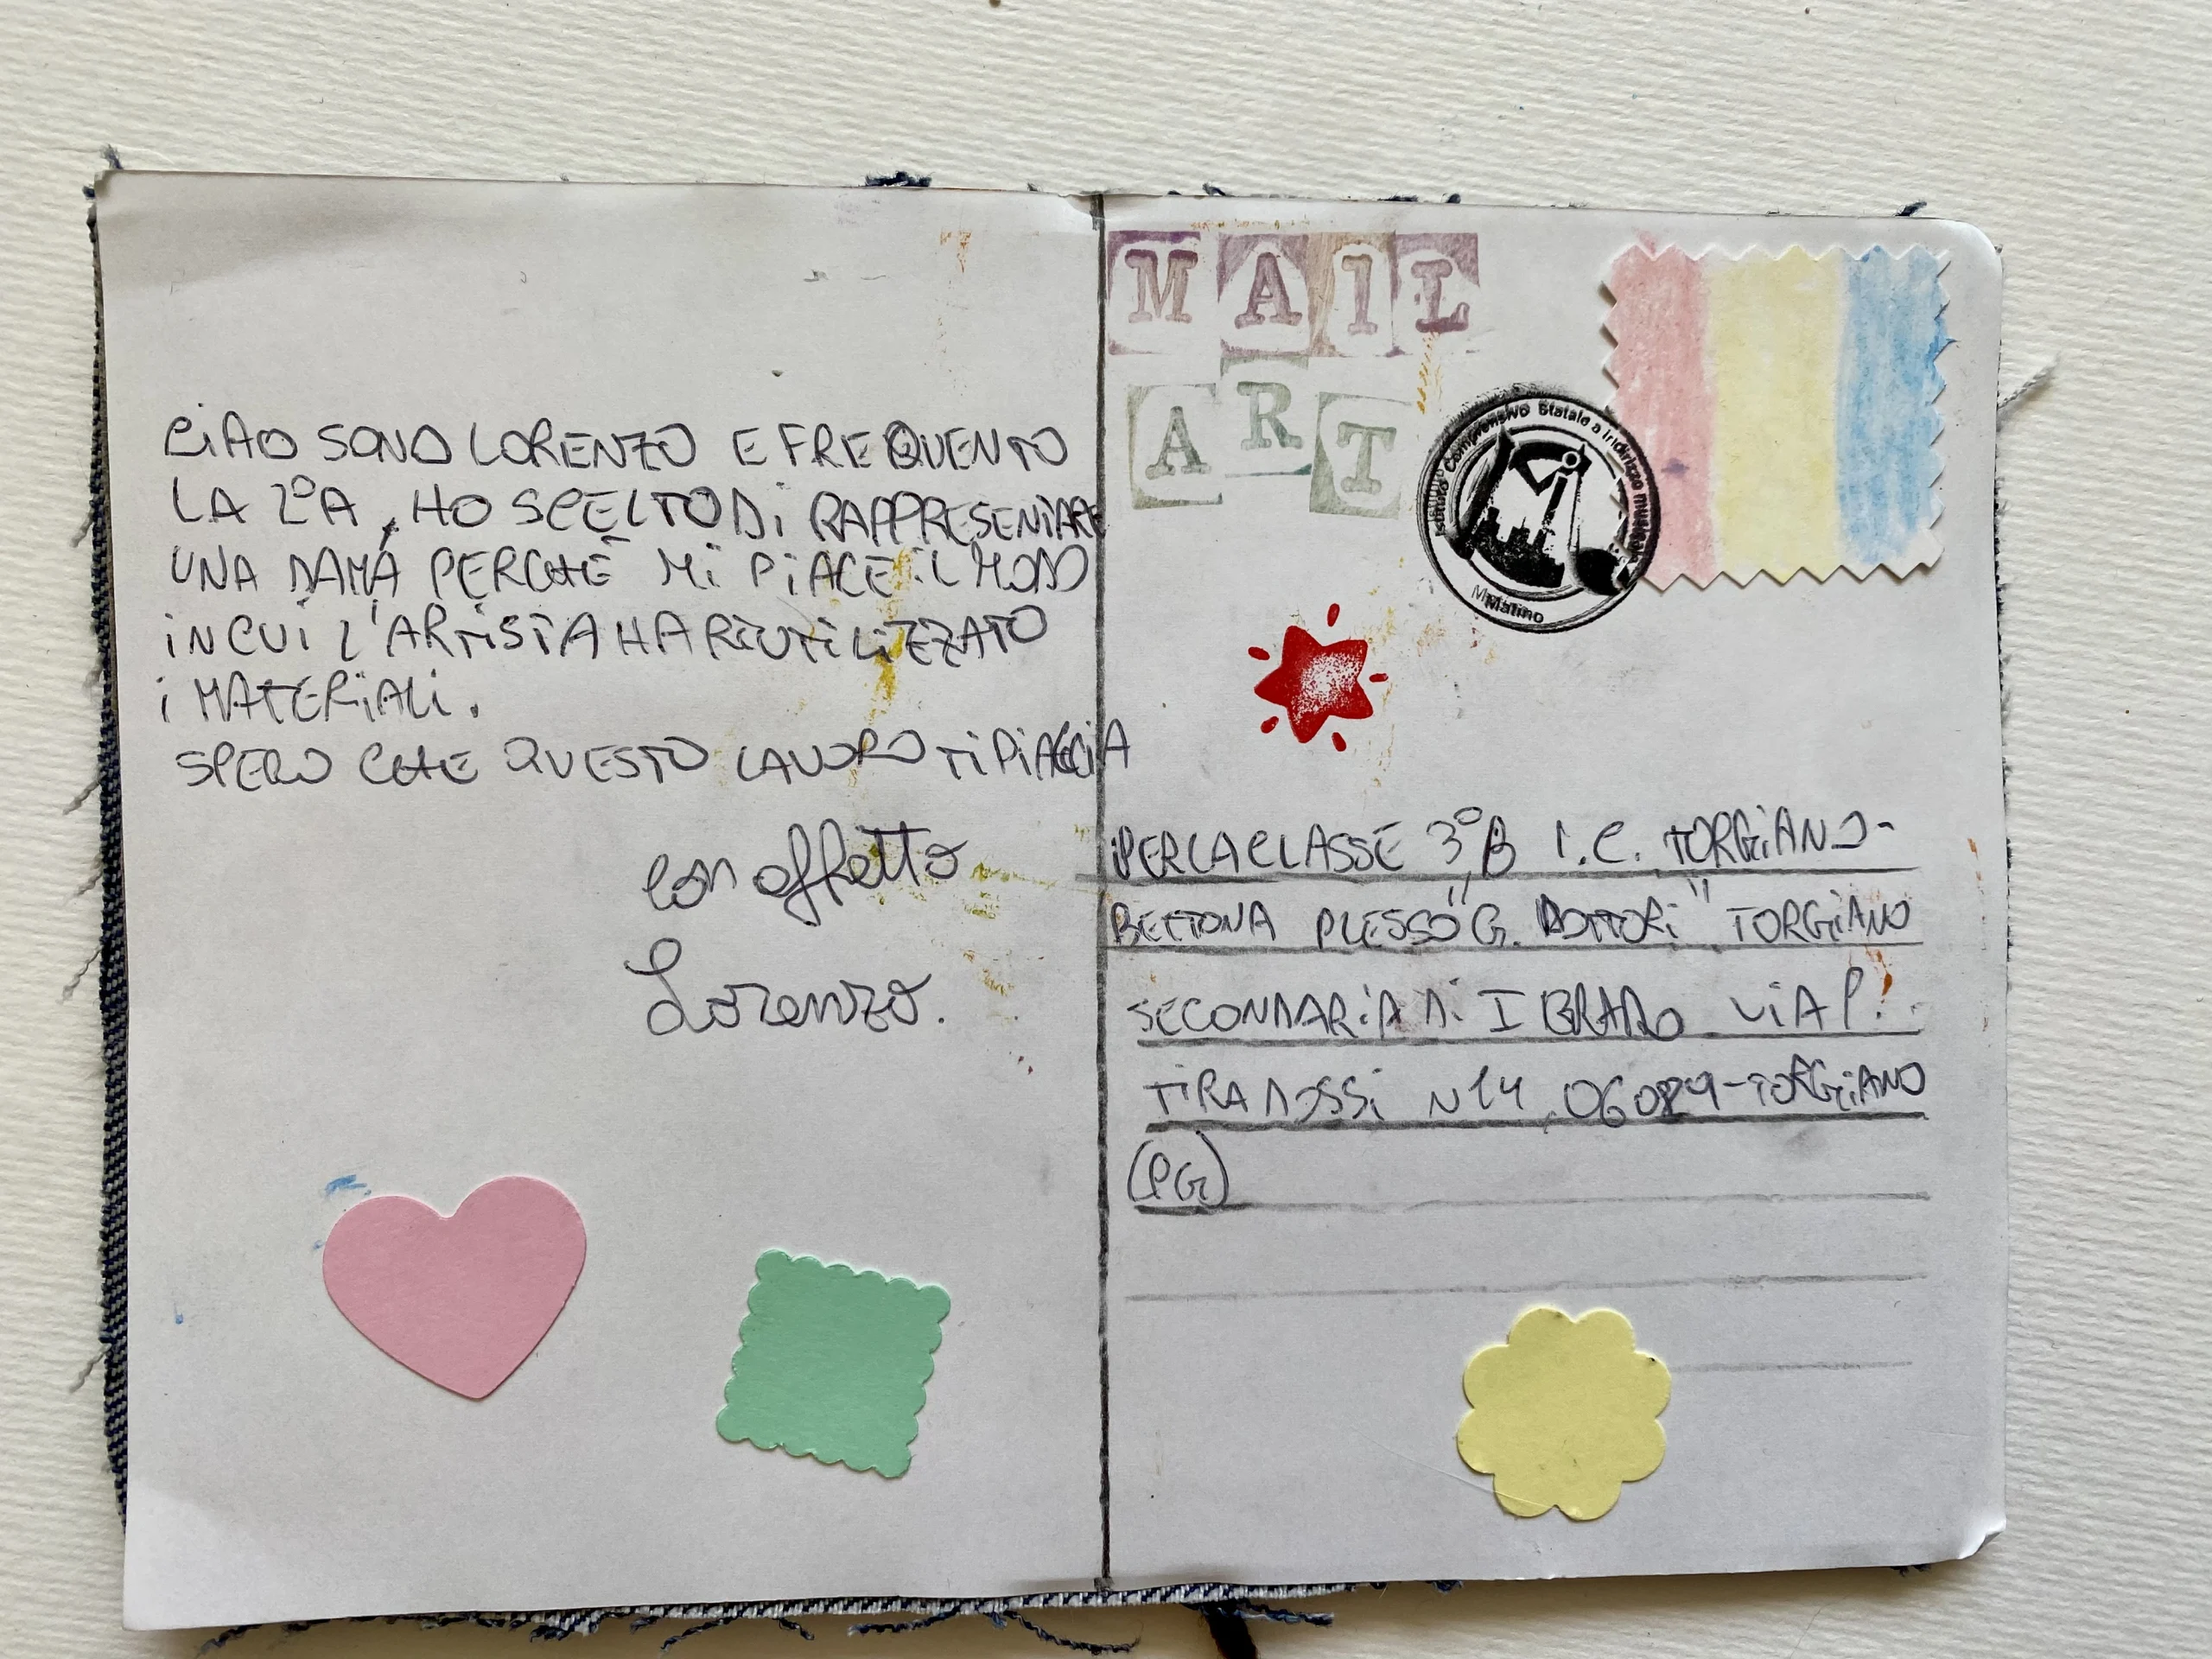 CIAO SONO LORENZO E FREQUENTO
LA 2°A, HO SCELTO DI RAPPRESENTARE
UNA DAMA PERCHÈ MI PIACE IL MODO
IN CUI L'ARTISTA HA RIUTILIZZATO
I MATERIALI.
SPERO CHE QUESTO LAVORO TI PIACCIA
con affetto
Lorenzo.
MAIL
ART
Istituto Comprensivo Statale a Indirizzo musicale
Matino
PER LA CLASSE 3°B I.C. TORGIANO-
BETTONA PLESSO "G. DOTTORI" TORGIANO
SECONDARIA DI I GRADO VIA P.
TIRADOSSI N 14, 06089-TORGIANO
(PG)